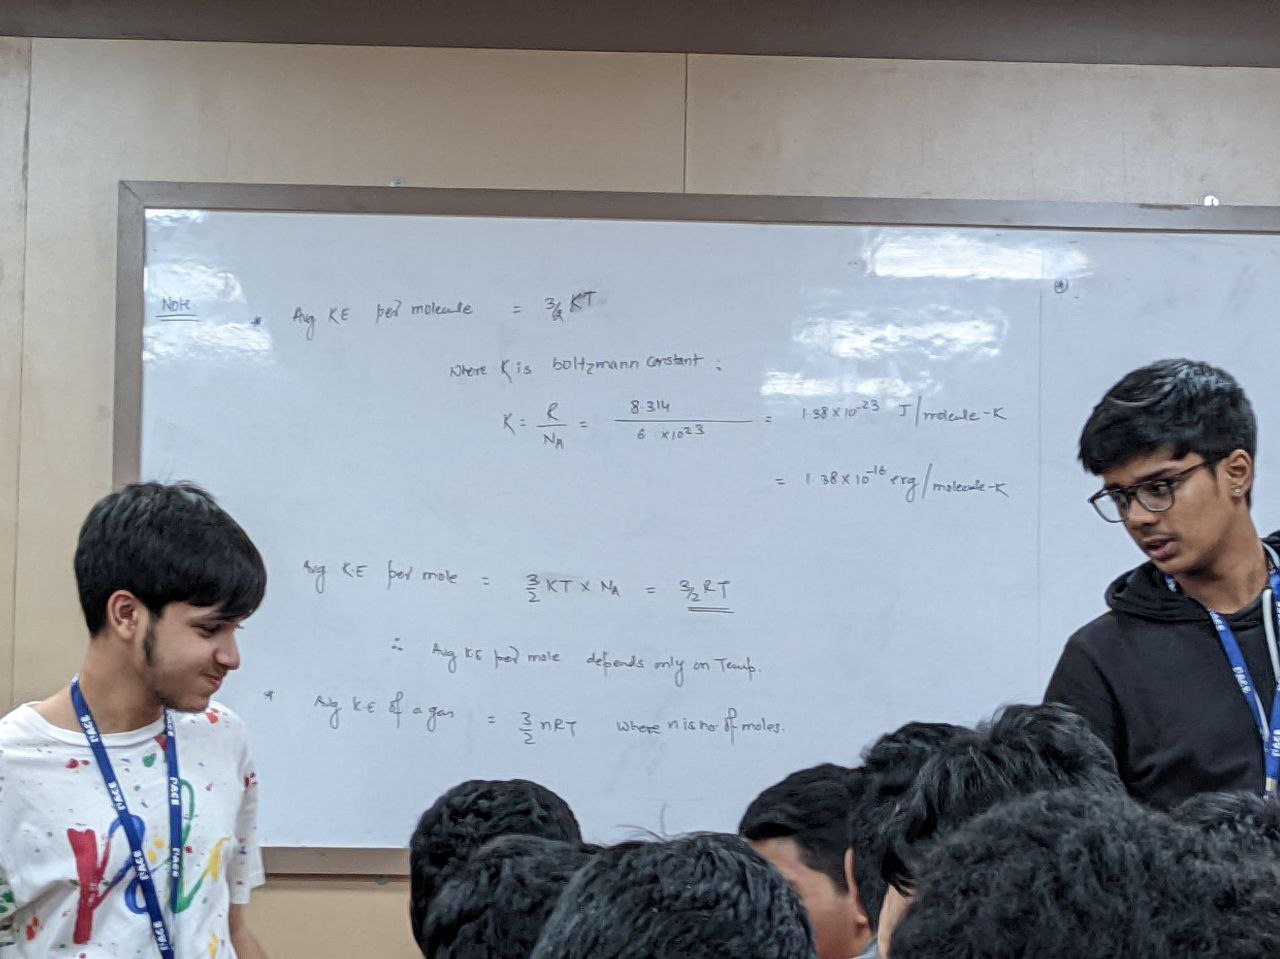 Note
* Avg KE per molecule = 3/2 KT
where K is boltzmann constant :
K = R/NA = 8.314/6 ×10²³ = 1.38×10⁻²³ J/molecule-K
= 1.38×10⁻¹⁶ erg/molecule-K
Avg K.E per mole = 3/2 KT × NA = 3/2 RT
∴ Avg KE per mole depends only on Temp.
* Avg K.E of a gas = 3/2 nRT where n is no. of moles.
PACE
PACE
PACE
PACE
PACE
PACE
PACE